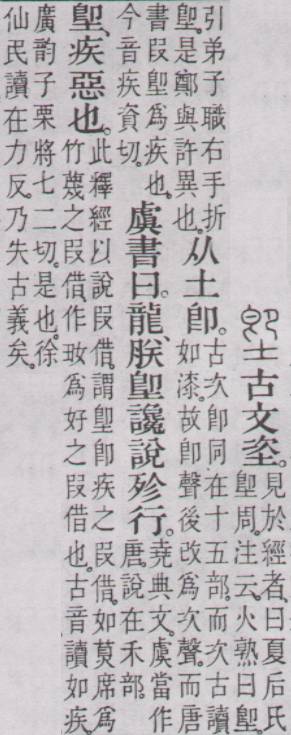 古文垐。見於經者曰夏后氏
堲周。注云。火熟曰堲。
引弟子職右手折
堲。是鄭與許異也。
从土卽。
古次卽同在十五部。而次古讀
如漆。故卽聲後改爲次聲。而唐
書叚堲爲疾也。
今音疾資切。
虞書曰。龍、朕堲讒說殄行。
堯典文。虞當作
唐。說在禾部。
堲、疾惡也。
此釋經以說叚借。謂堲卽疾之叚借。如莫席爲
竹蔑之叚借。作玫爲好之叚借也。古音讀如疾。
廣韵子栗將七二切。是也。徐
仙民讀在力反。乃失古義矣。